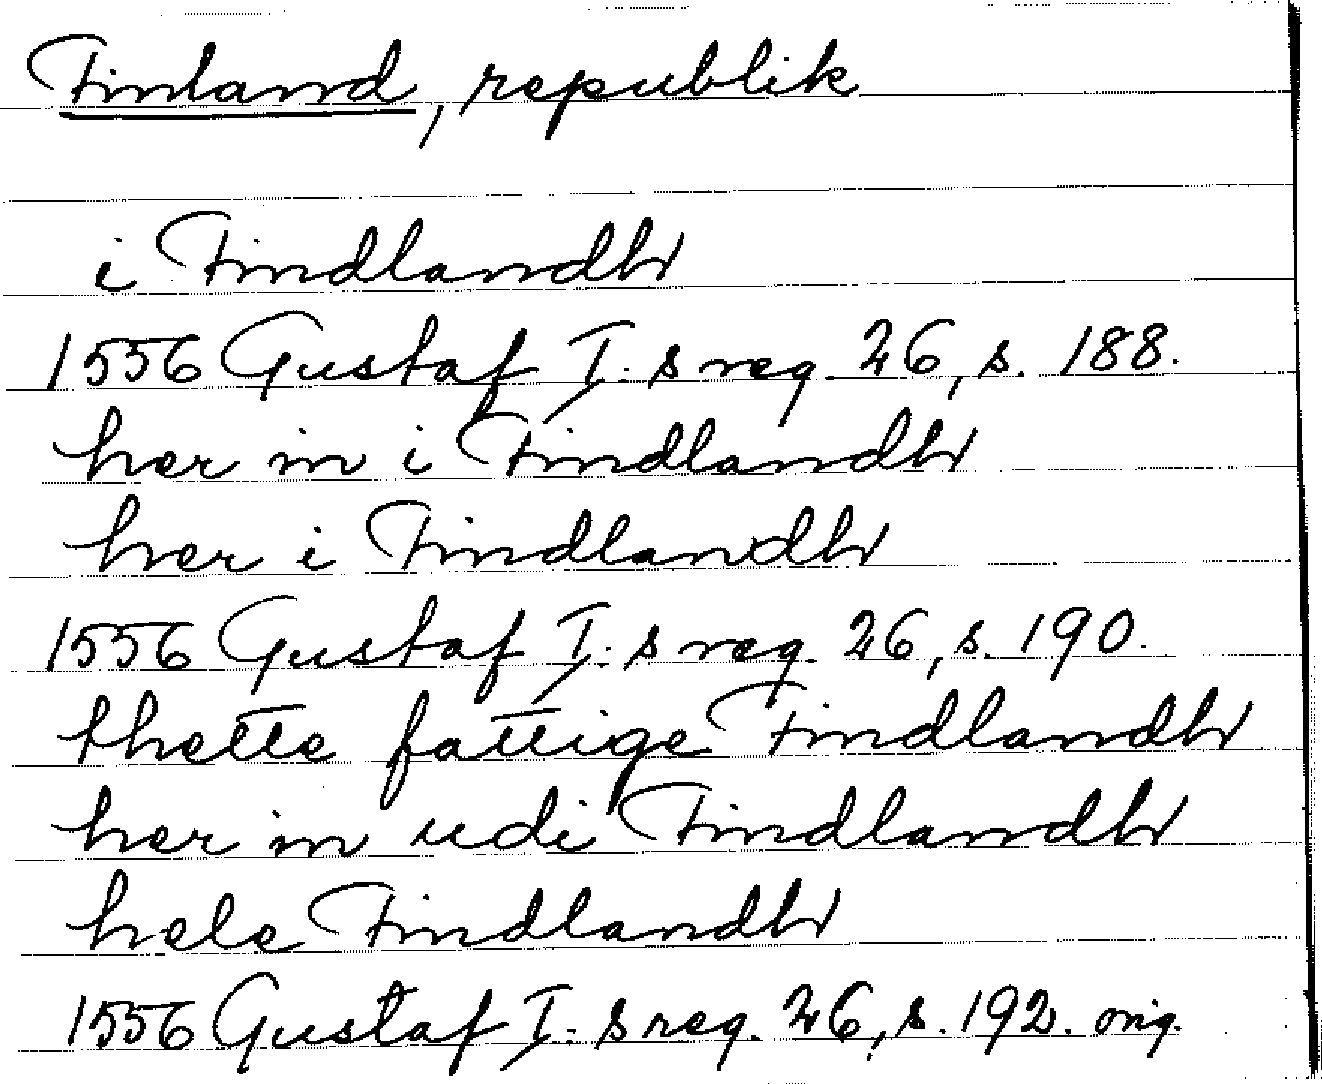 Finland, republik
i Findlandh
1556 Gustaf I: s reg. 26, s. 188.
her in i Findlandh
her i Findlandh
1556 Gustaf I: s reg. 26, s. 190.
thette fattige Findlandh
her in udi Findlandh
hele Findlandh
1556 Gustaf I: s reg. 26, s. 192. orig.